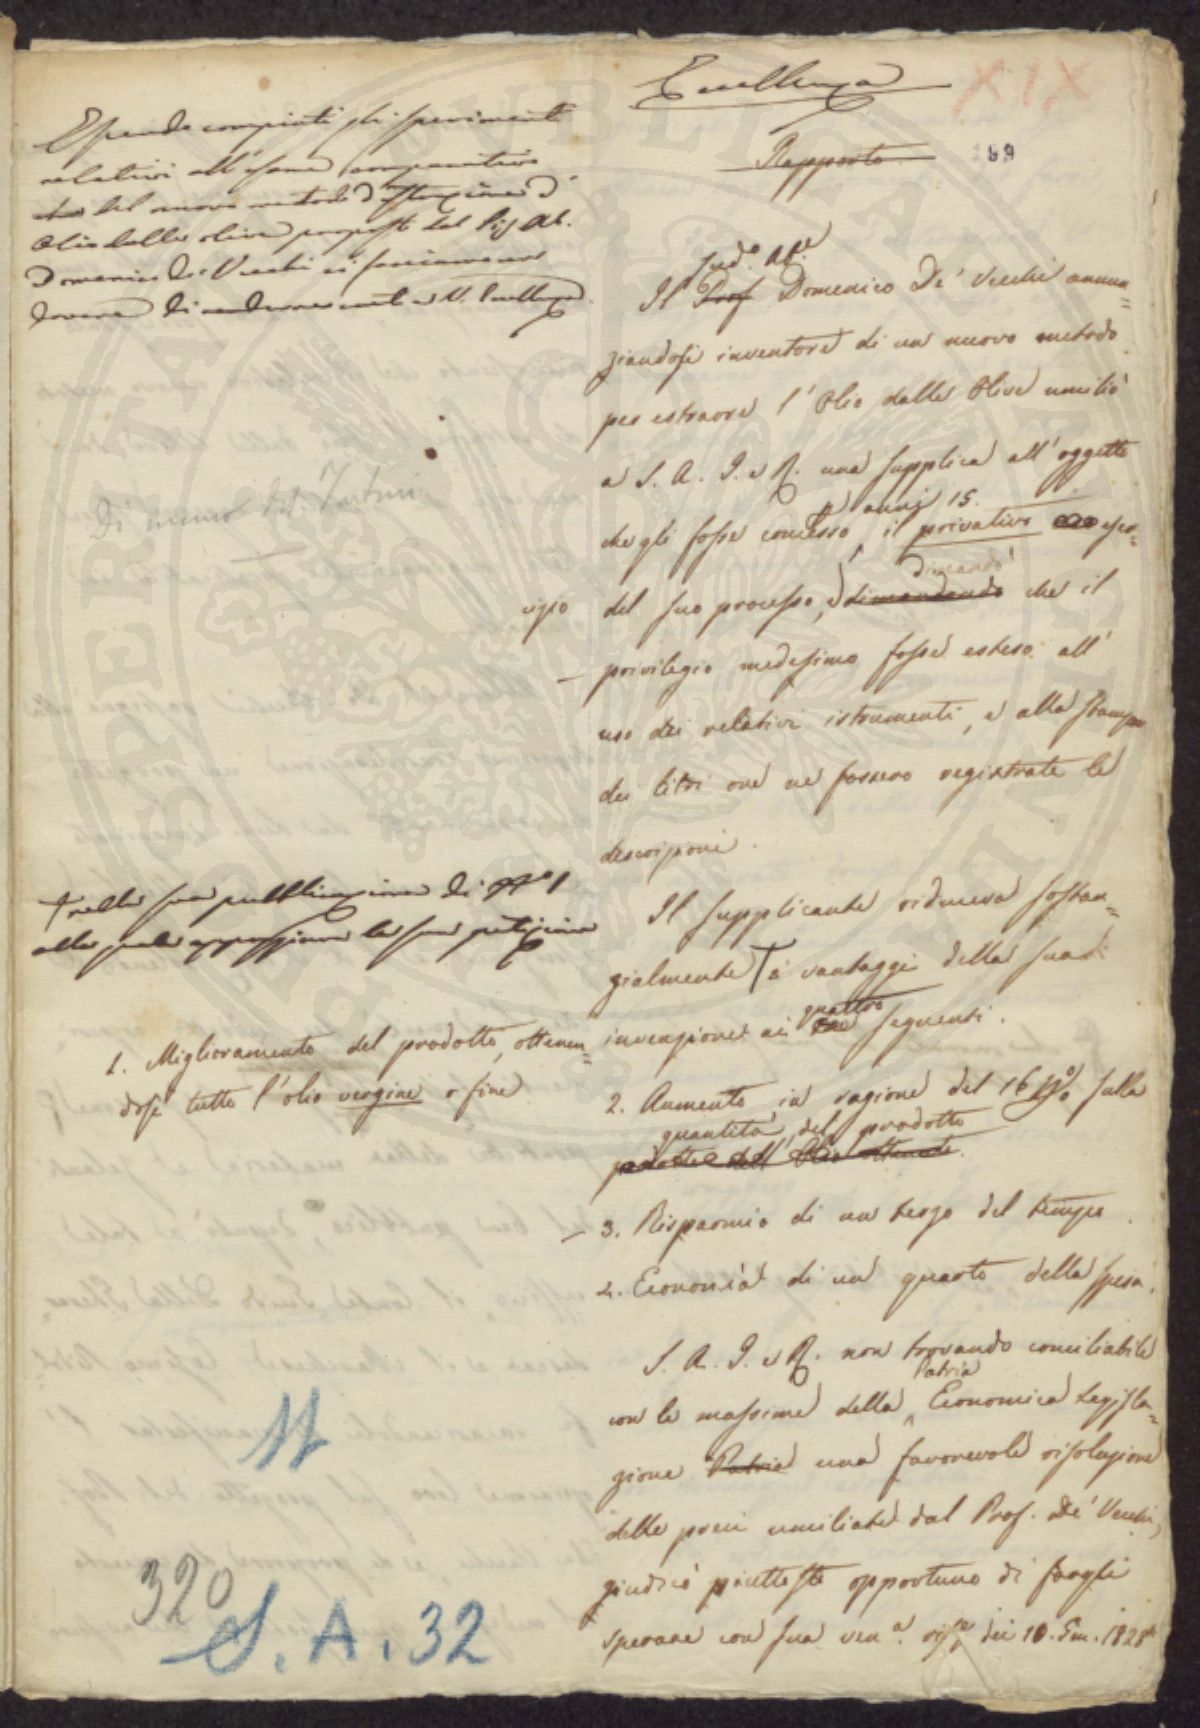 Eccellenza
XIX
Rapporto
99
Essendo compiuti gli sperimenti
relativi all'esame comparativo
del nuovo metodo d'estrazione d'
Olio dalle olive proposto dal Sig. Ab.
Domenico De' Vecchi ci facciamo un
dovere di renderne conto a V. Eccellenza
Sacd.e Ab.e
Il Prof Domenico De' Vecchi annun=
ziandosi inventore di un nuovo metodo
per estrarre l'Olio dalle Olive umiliò
a S. A. I. e R. una supplica all'oggetto
p anni 15.
che gli fosse concesso, il privativo eser=
Di mano del Tartini
dimandò
cizio del suo processo, e dimandando che il
privilegio medesimo fosse esteso all'
uso dei relativi istrumenti, e alla stampa
dei libri ove ne fossero registrate le
descrizioni.
† nella sua pubblicazione di
alla quale appoggiava la sua petizione
Il supplicante riduceva sostan=
zialmente † i vantaggi della sua
quattro
invenzione ai tre seguenti.
1. Miglioramento del prodotto, ottenen=
dosi tutto l'olio vergine o fine
2. Aumento in ragione del 16 p% sulla
quantità del prodotto
prodotto dell'Olio ottenuto.
3. Risparmio di un terzo del tempo
4. Economia di un quarto della spesa.
S. A. I. e R. non trovando conciliabile
Patria
con le massime della Economica Legisla=
zione Patria una favorevole risoluzione
delle preci umiliate dal Prof. De' Vecchi,
giudicò piuttosto opportuno di fargli
sperare con sua ven.a ris.e dei 10. Gen. 1828
11
320
S. A. 32
PUBLICA UTILITA